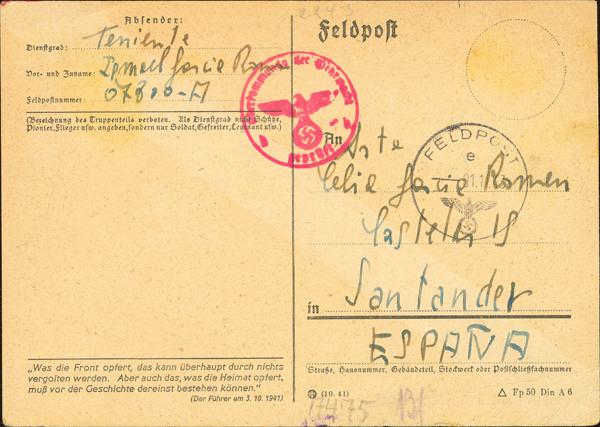 Absender:
Dienstgrad: Teniente
Vor- und Zuname: Ismael Garcia Roman
Feldpostnummer: 07800-A
(Bezeichnung des Truppenteils verboten. Als Dienstgrad nicht Schütze,
Pionier, Flieger usw. angeben, sondern nur Soldat, Gefreiter, Leutnant usw.)
„Was die Front opfert, das kann überhaupt durch nichts
vergolten werden. Aber auch das, was die Heimat opfert,
muß vor der Geschichte dereinst bestehen können.“
(Der Führer am 3. 10. 1941)
Feldpost
Oberkommando der Wehrmacht
geprüft
FELDPOST
e
An
Srta
Celia Garcia Roman
Castelar 15
in Santander
ESPAÑA
Straße, Hausnummer, Gebäudeteil, Stockwerk oder Postschließfachnummer
(10. 41)
Fp 50 Din A 6
17475